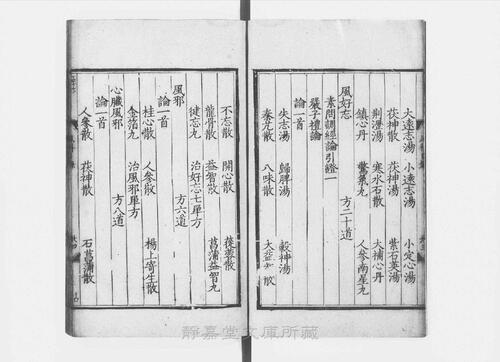 大遠志湯 小遠志湯 小定心湯
茯神湯 茯神湯 紫石英湯
荆瀝湯 寒水石散 大補心丹
鎮心丹 驚氣丸 人參南星丸
風好忘 方二十道
素問調經論引證一
嚴子禮論
論一首
失志湯 歸脾湯 穀神湯
八味散 大益智散
不忘散 開心散
龍骨散 益智散 菖蒲益智丸
健忘丸 治好忘七單方
風邪 方六道
論一首
桂心散 人參散 楊上寄生散
金箔丸 治風邪單方
心臟風邪 方八道
論一首
人參散 茯神散 石菖蒲散
靜嘉堂文庫所藏